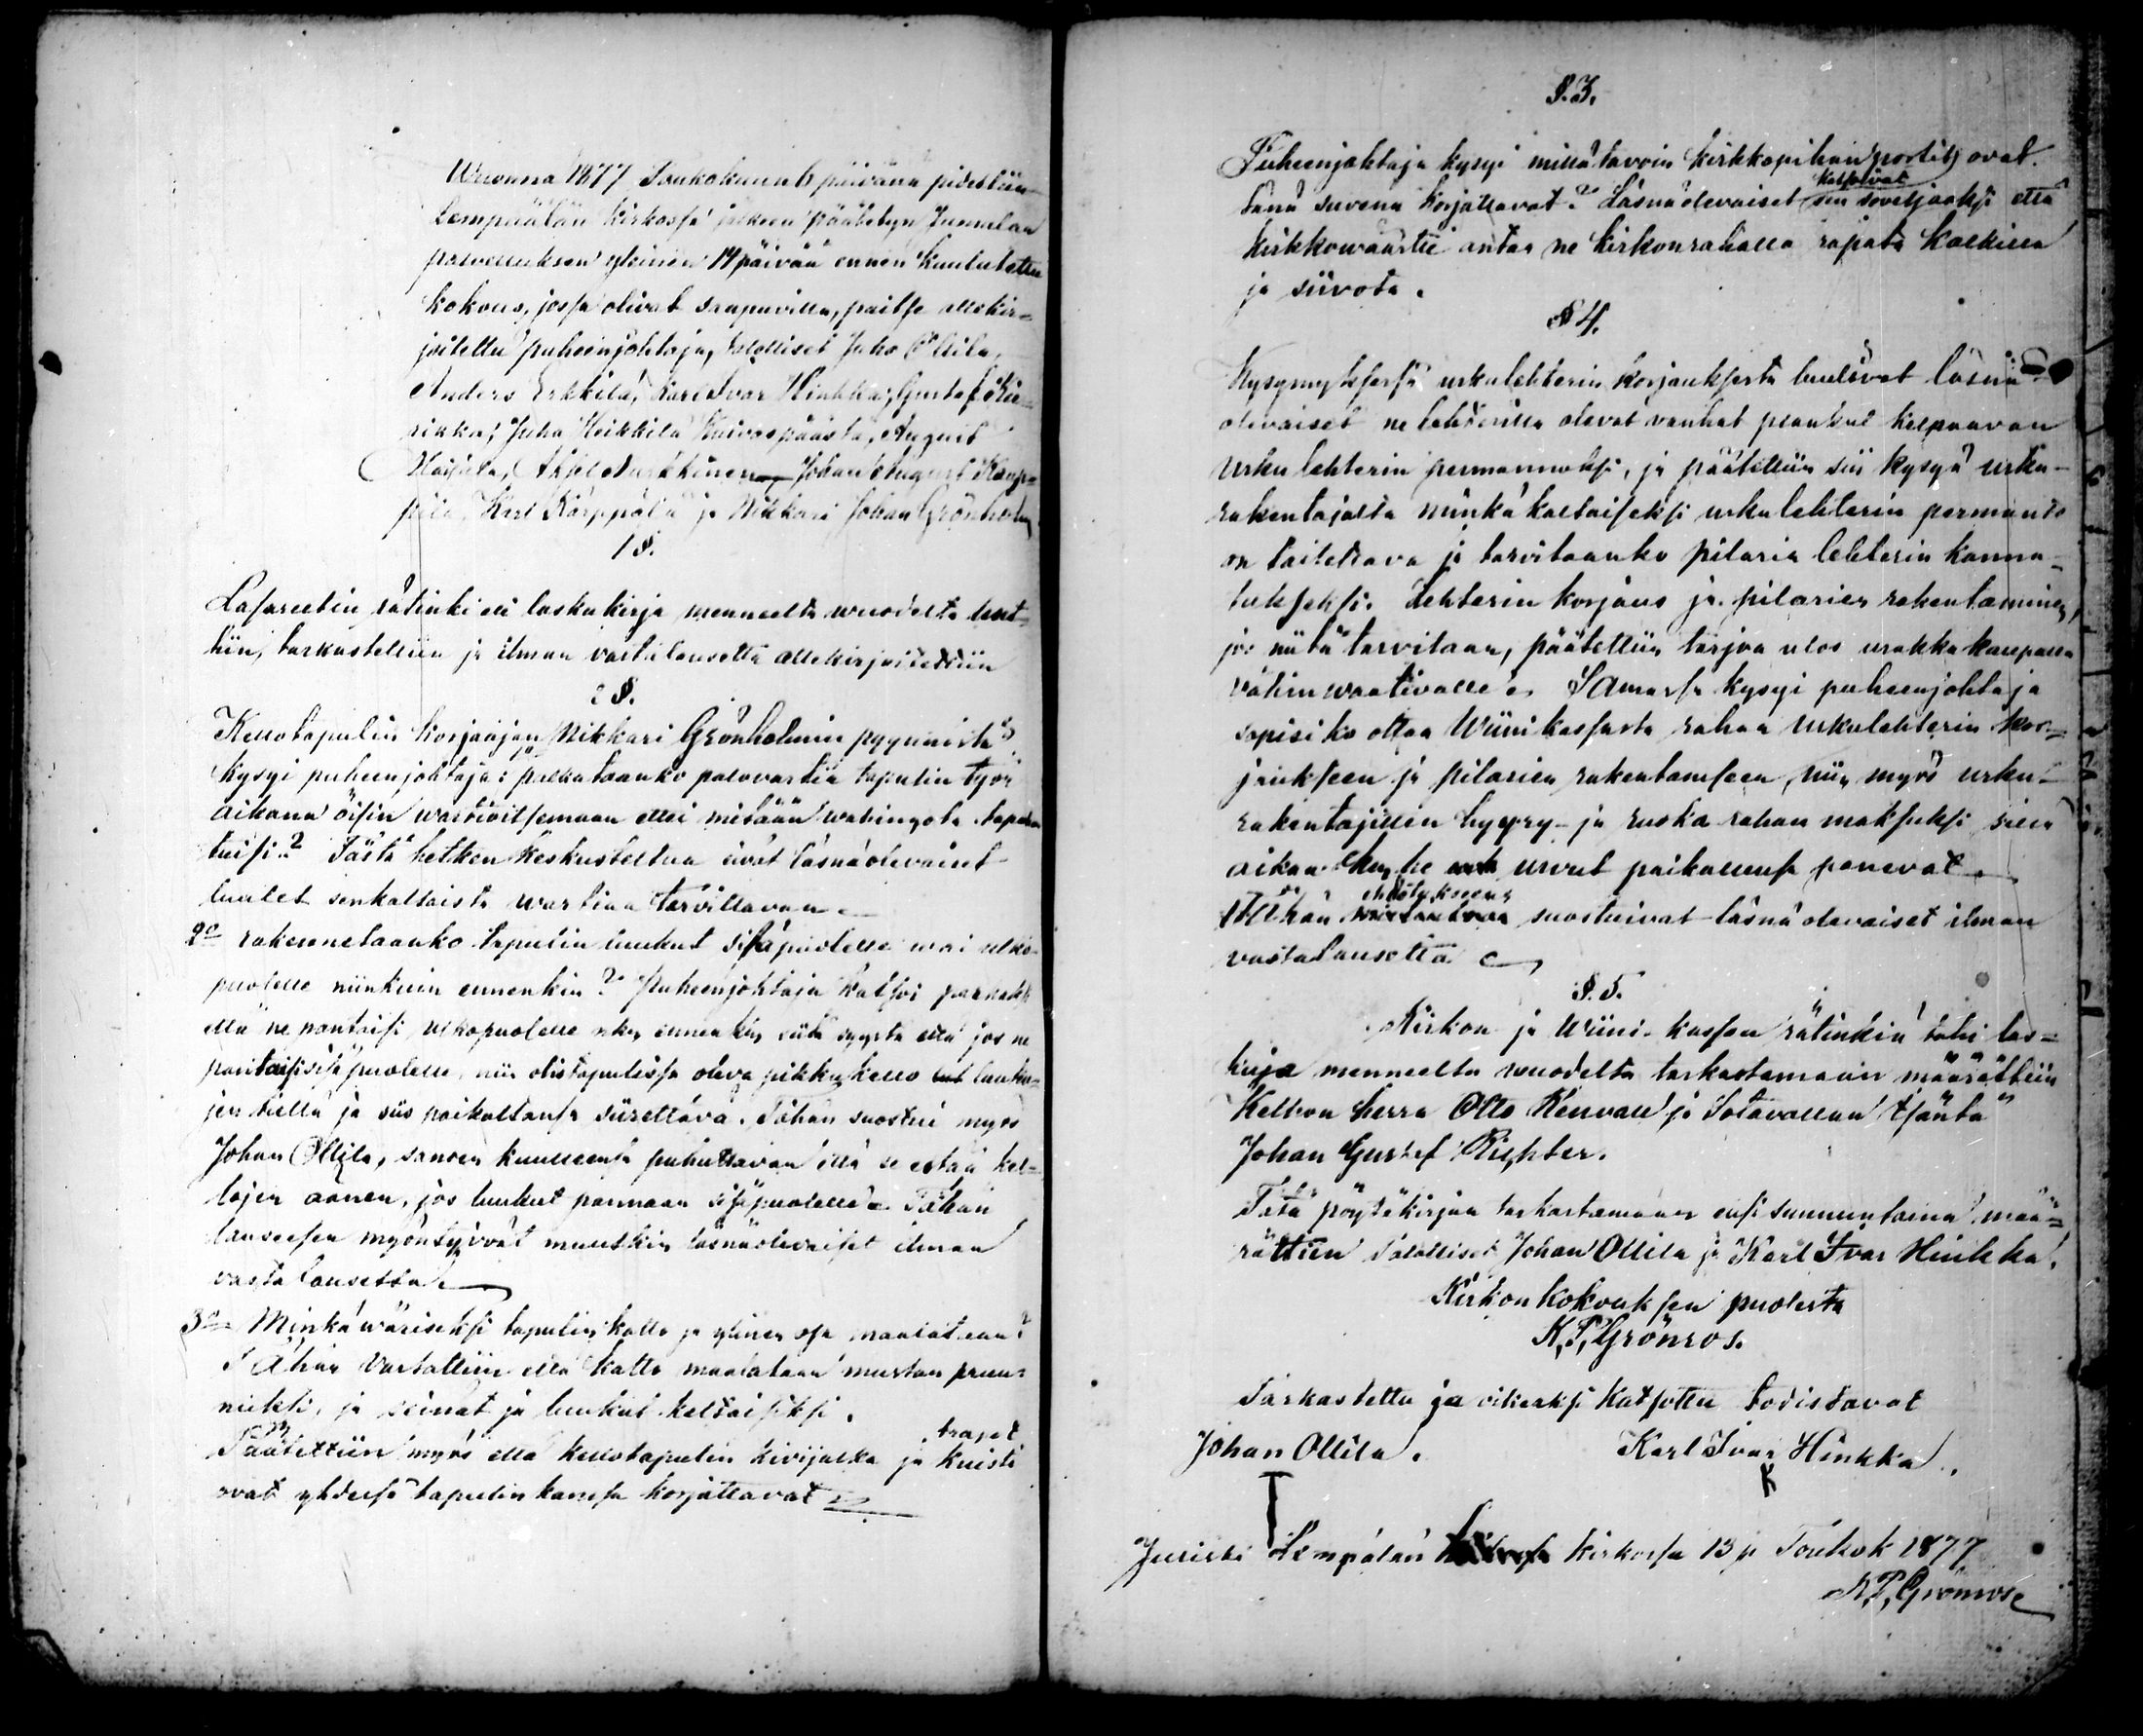 Wuonna 1877 Toukokuun 6 päivänä pidettiin
Lempäälän kirkossa jälkeen päätetyn Jumalan
palvelluksen yleinen 14 päivää ennen kuulutettu
kokous, jossa olivat saapuvilla, paitse allekir=
joitettu puheenjohtaja, talolliset Juho Ollila,
Anders Erkkilä, Karl Ivar Hinkka, Gustaf
rikka, Juha Heikkilä Kuivaspäästä, August
Johan August Kaup=
pila, Karl Kärppälä ja Nikkari Johan Grönholm
1 §.
Lasareetin rätinki eli laskukirja menneeltä wuodelta luet=
tiin, tarkastettiin ja ilman vastalausetta allekirjoitettiin
2 §.
Kellotapulin korjaajan Nikkari Grönholmin pyynnöstä
kysyi puheenjohtaja: palkataanko palovartia tapulin työn
aikana öisin wartioitsemaan ettei mitään wahingota tapah
tuisi? Tästä hetken keskusteltua eivät läsnäolevaiset
luulet senkaltaista wartiaa tarvittavan.
2o rakennetaanko tapulin luukut sisäpuolelle wai ulko=
puolelle niinkuin ennenkin? Puheenjohtaja katsoi parhaaksi
että ne pantaisi ulkopuolelle niin ennenkin siitä syystä että jos ne
pantaisi sisäpuolelle, niin olis tapulissa oleva pikku kello luuku=
jen tiellä ja siis paikaltansa siirettävä. Tähän suostui myös
Johan Ollila, sanoen kuulleensa puhuttavan että se estää kel=
lojen äänen, jos luukut pannaan sisäpuolelle. Tähän
lauseesen myöntyivät muutkin läsnäolevaiset ilman
vastalausetta.
3o Minkä wäriseksi tapulin katto ja yleinen osa maalataan?
Tähän vastattiin että katto maalataan mustan pruu=
niksi, ja seinät ja luukut keltaisiksi.
Päätettiin myös että kellotapulin kivijalka ja traput kuisti
ovat yhdessä tapulin kanssa korjattavat
§. 3.
Puheenjohtaja kysyi millä tavoin kirkkopihan portit ovat
tänä suvena korjattavat? Läsnäolevaiset katsoivat sen soveljaaksi että
kirkkowäärtti antaa ne kirkonrahalla rapata kalkilla
ja siivota.
§ 4.
Kysymyksessä urkulehterin korjauksesta luulivat läsnä=
olevaiset ne lehterillä olevat vanhat plankut kelpaavan
urku lehterin permannoksi, ja päätettiin siis kysyä urku=
rakentajalta minkä kaltaiseksi urkulehterin permanto
on laitettava ja tarvitaanko pilaria lehterin kanna=
tukseksi. Lehterin korjaus ja pilarien rakentaminen,
jos niitä tarvitaan, päätettiin tarjoa ulos urakka kaupalla
vähin waativalle. Samassa kysyi puheenjohtaja
sopisiko ottaa Wiini kassasta rahaa urkulehterin kor=
jaukseen ja pilarien rakentamseen, niin myös urku=
rakentajillen hyyry- ja ruoka rahan maksuksi siinä
aikaa kun he urvut paikallensa panevat.
Tähän ehdotukseen suostuivat läsnä olevaiset ilman
vastalausetta
§. 5.
Kirkon ja Wiini-kassan rätinkiä tahi las=
kuja menneeltä wuodelta tarkastamaan määrättiin
Kelhon herra Otto Renvall ja Sotavallan isäntä
Johan Gustaf Richter.
Tätä pöytäkirjaa tarkastamaan ensi sunnuntaina mää=
rättiin Talolliset Johan Ollila ja Karl Ivar Hinkka.
Kirkonkokouksen puolesta
K. P. Grönros.
Tarkastettu ja oikeaksi katsottu todistavat
Johan Ollila. Karl Ivar Hinkka.
T K
Julisti Lempälän kirkossa 13 p Toukok 1877
K. P. Grönros